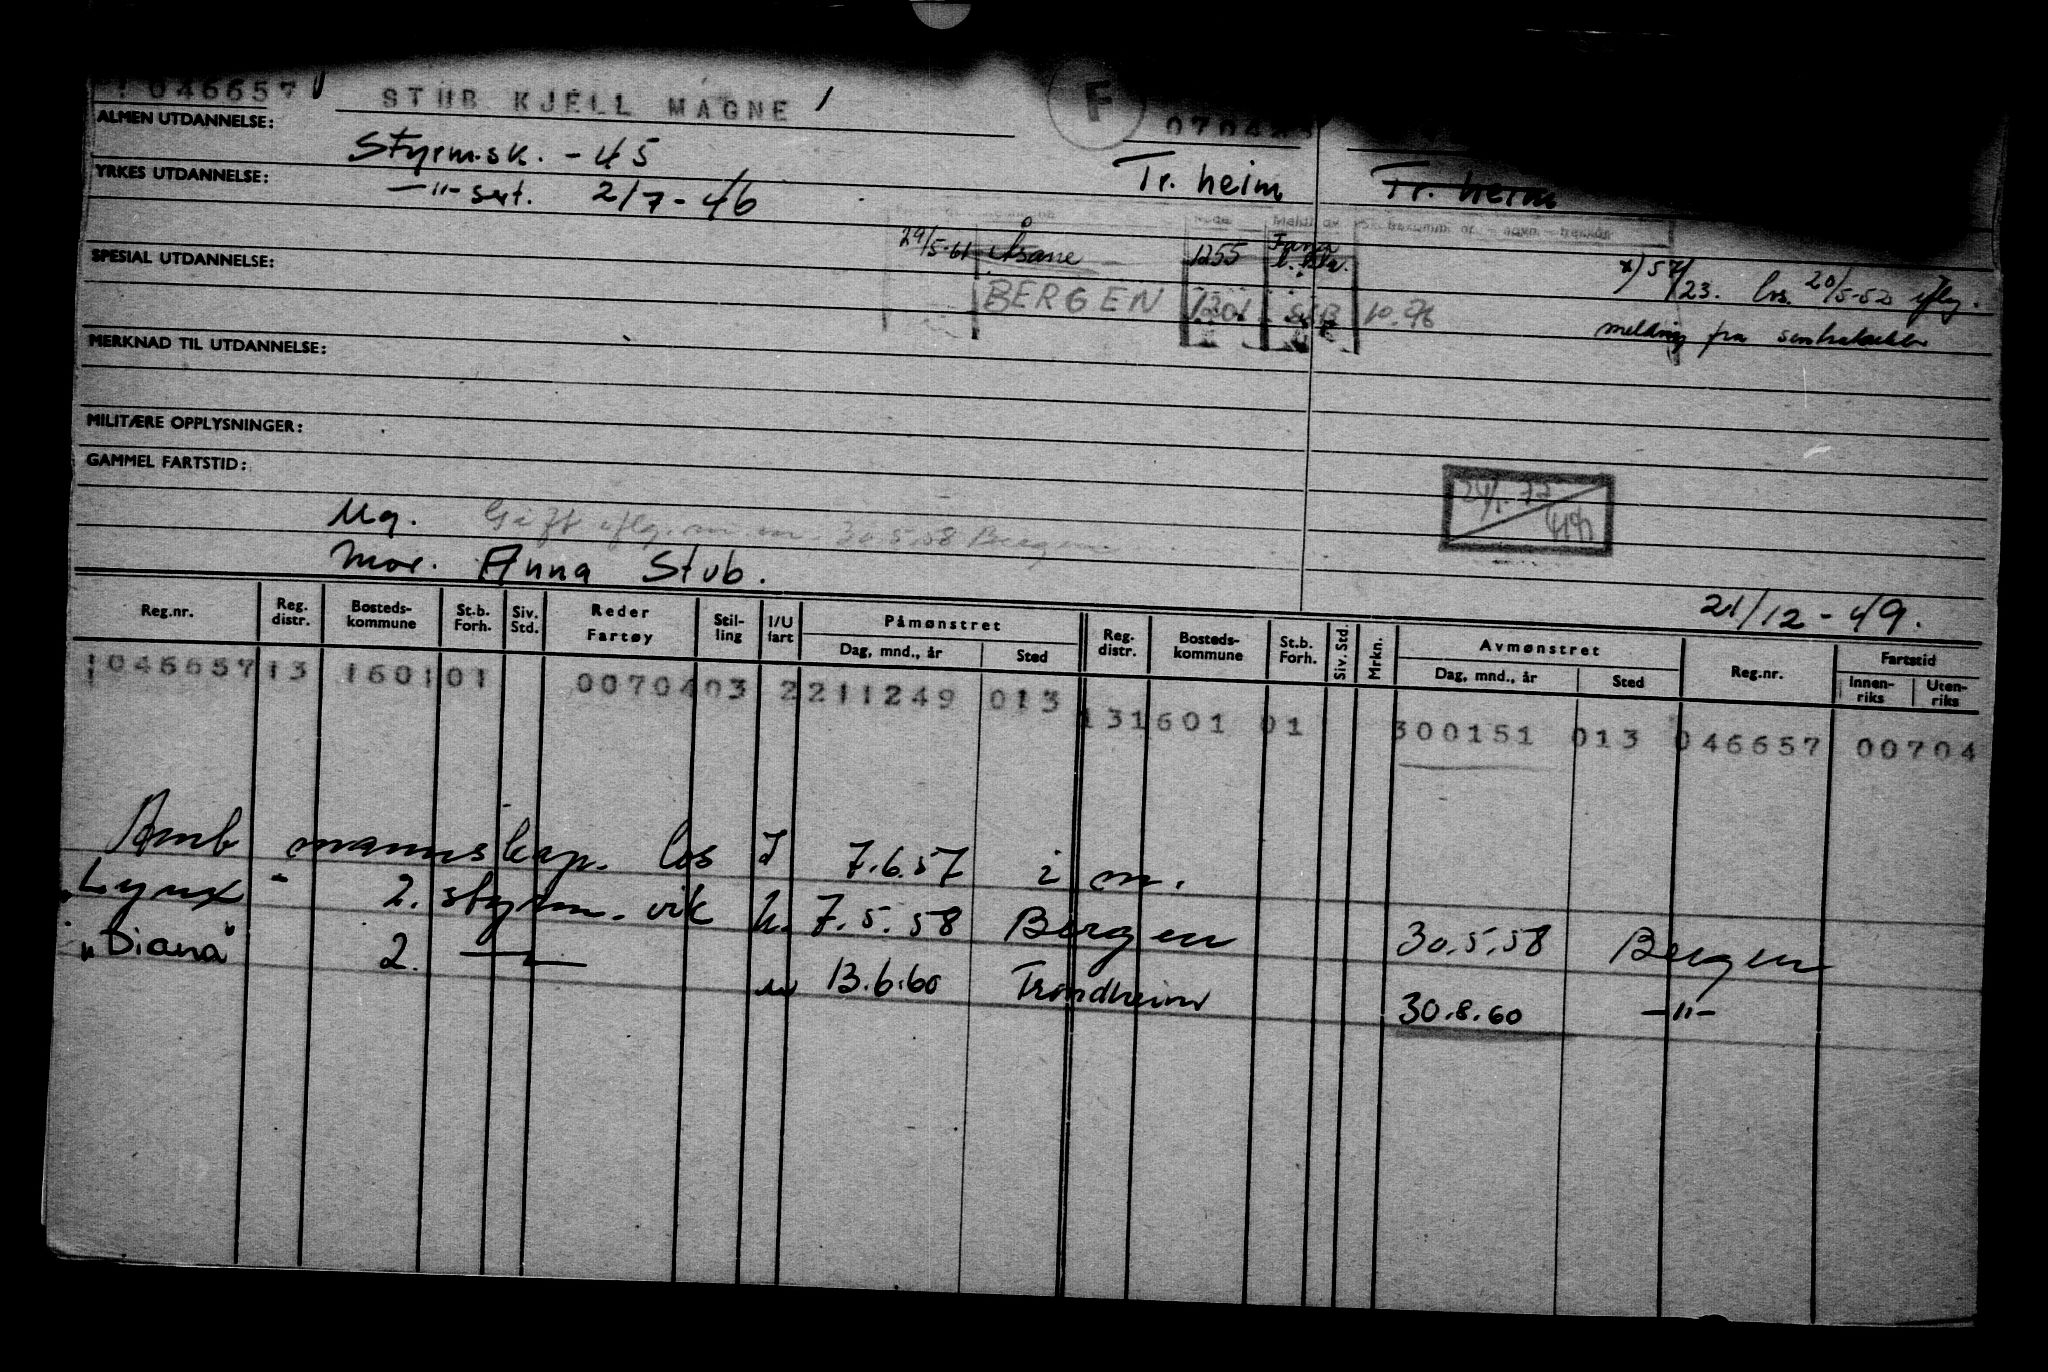 1046657 STUB KJELL MAGNE F
ALMEN UTDANNELSE:
Styrm.sk. - 45 Tr. heim Tr. heim
YRKES UTDANNELSE:
—"— sert. 2/7 - 46
29/5-61 Åsane 1255 Fana
SPESIAL UTDANNELSE:
x) 57/23. los. 20/5-52 iflg.
BERGEN 1301
melding fra
MERKNAD TIL UTDANNELSE:
MILITÆRE OPPLYSNINGER:
GAMMEL FARTSTID:
Ug. Gift iflg. m.m. 30.5.58 Bergen
Mor. Anna Stub.
21/12 - 49.
Reg.nr. Reg. distr. Bosteds-kommune St.b. Forh. Siv. Std. Reder Fartøy Stil-ling I/U fart Påmønstret Dag, mnd., år Sted Reg. distr. Bosteds-kommune St.b. Forh. Siv. Std. Mrkn. Avmønstret Dag, mnd., år Sted Reg.nr. Fartstid Innen-riks Uten-riks
1046657 13 1601 01 00704 03 2 211249 013 131601 01 300151 013 046657 00704
Amb mannskap. los I 7.6.57 i m.
"Lynx" 2. styrm. vik U. 7.5.58 Bergen 30.5.58 Bergen
"Diana" 2. —"— u 13.6.60 Trondheim 30.8.60 —"—